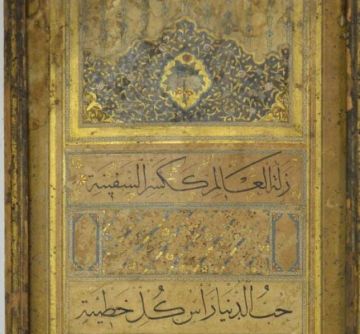 زلة العالم ككسر السفينة
حب الدنيا راس كل خطيئة